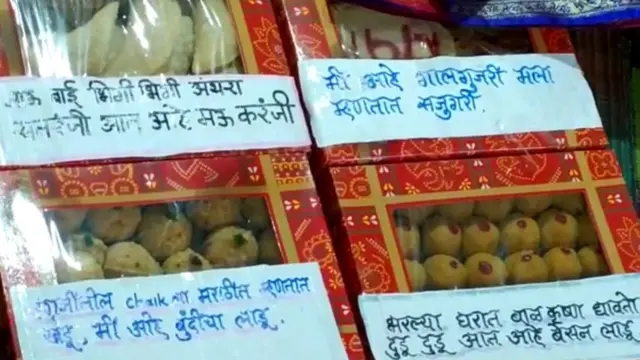 बाई भिंगी भिंगी अंथरा
सतरंजी आत आहे मऊ करंजी
मी आहे गालगुजरी मला
म्हणतात सजुगरी.
chalk ला मराठीत म्हणतात
खडू, मी आहे बुंदीचा लाडू.
भरल्या घरात बाळ कृष्ण धावतो
दुडू दुडू आत आहे बेसन लाडू